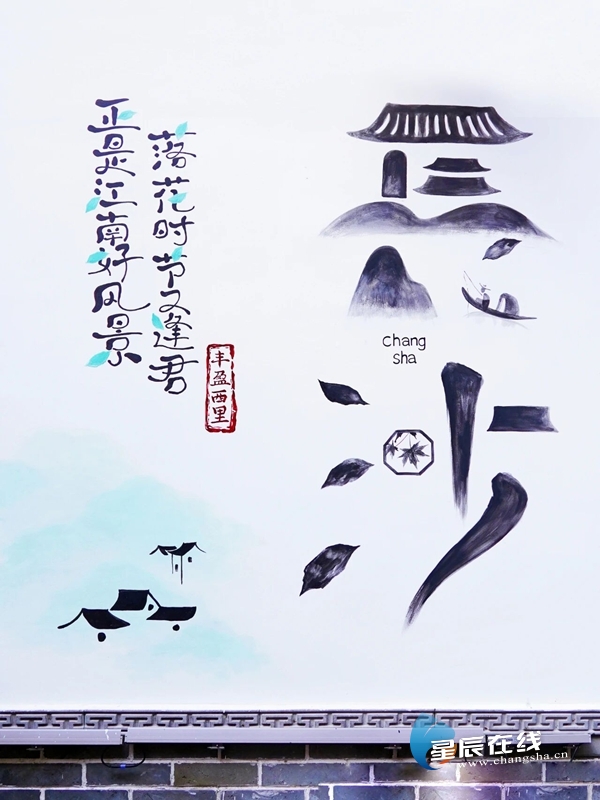 正是江南好风景
落花时节又逢君
丰盈西里
長
chang
sha
沙
星辰在线
www.changsha.cn